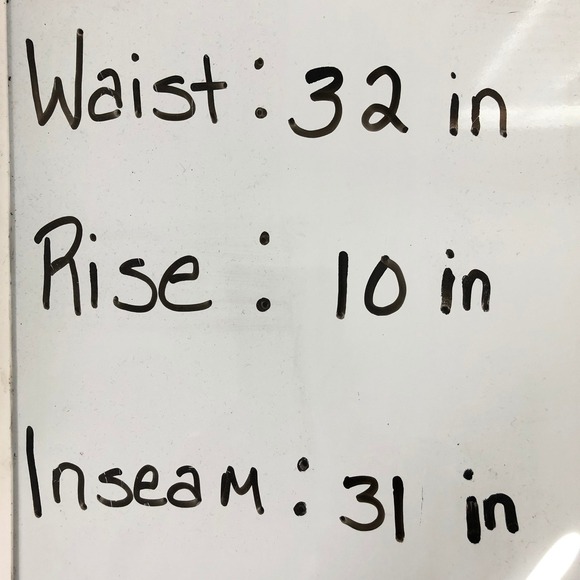 Waist: 32 in
Rise: 10 in
Inseam: 31 in